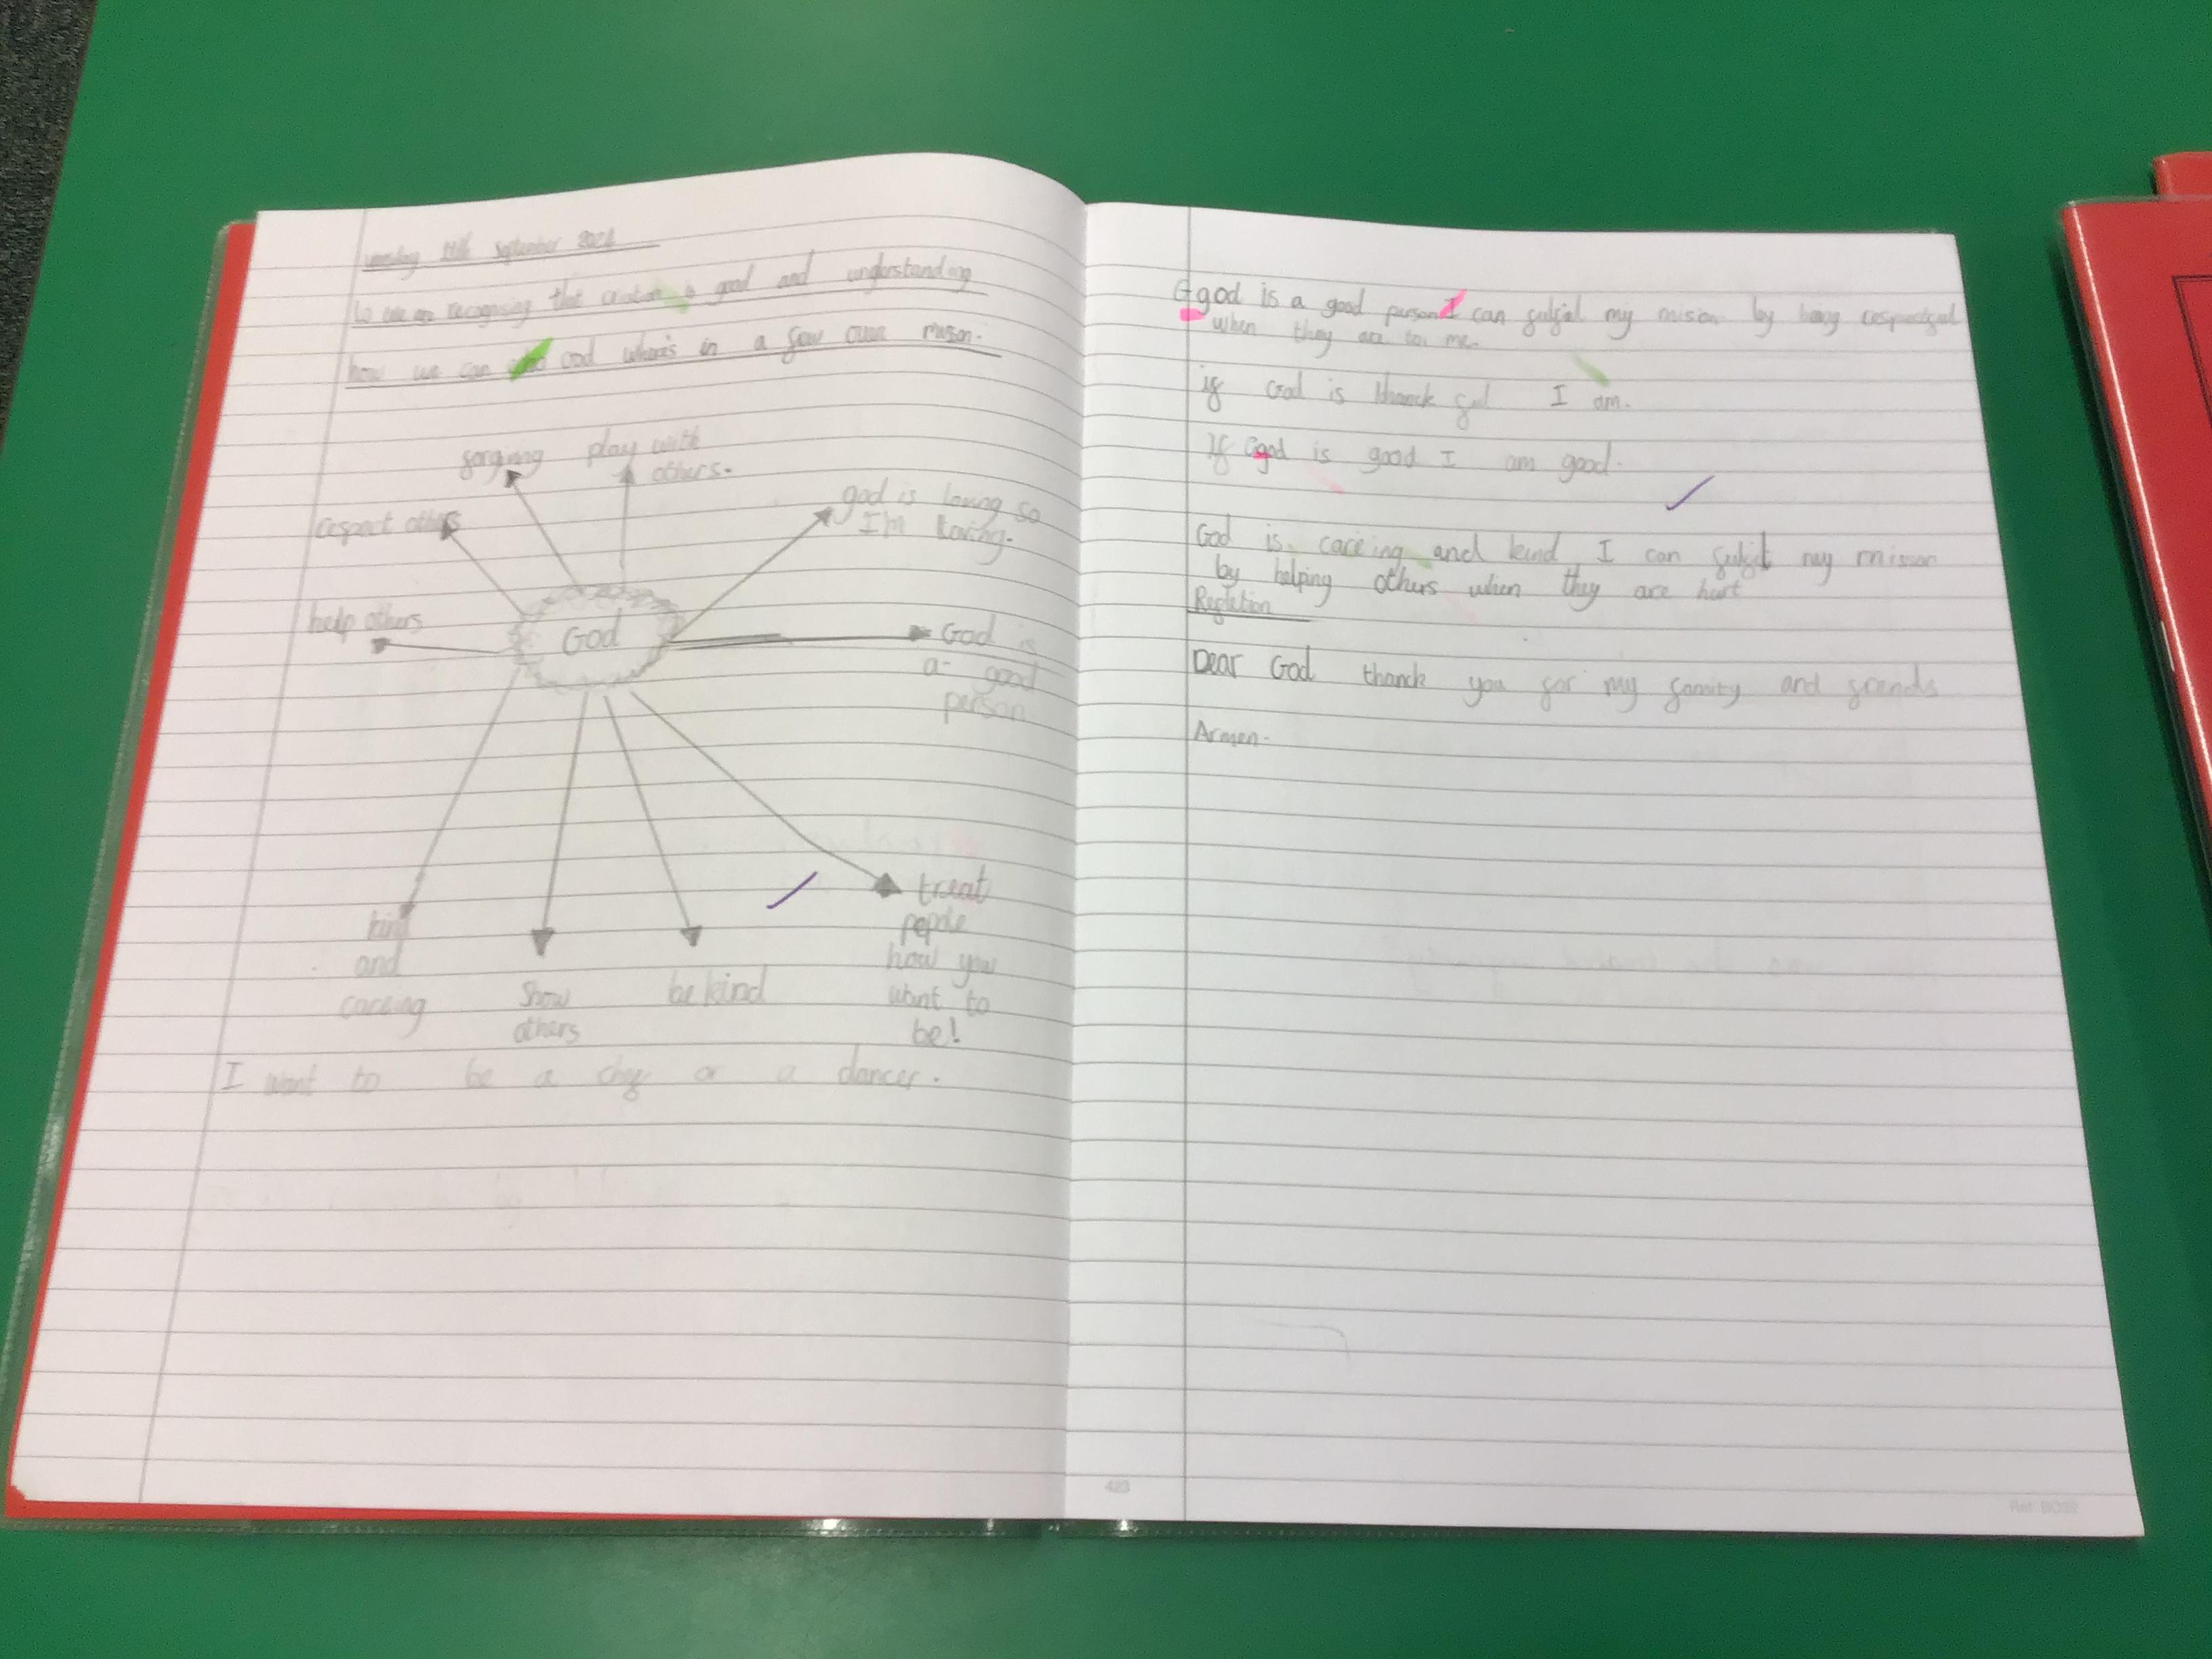 September 2024
Lo we are recognising that creation is good and understanding
how we can God where's in a our mison.
forgiving
play with
others.
respect others
god is loving so
I'm loving.
help others
God
God is
a good
person
treat
pepole
how you
want to
be!
kind
and
careing
Show
others
be kind
I want to be a chef or a dancer.
god is a good person I can fulfil my mison by being respectful
when they are to me.
if God is thanck ful I am.
If God is good I am good.
God is careing and kind I can fulfil my misson
by helping others when they are hurt
Regletion
Dear God thanck you for my and
Armen.
423